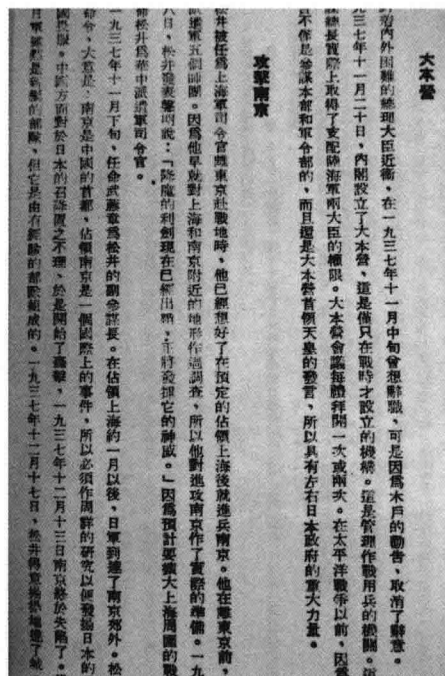 大本營
內外困難的總理大臣近衞，在一九三七年十一月中旬曾想辭職，可是因爲木戶的勸告、取消了辭意。
九三七年十一月二十日，內閣設立了大本營、這是僅只在戰時才設立的機構。這是管理作戰用兵的機關。這
總長實際上取得了支配陸海軍兩大臣的權限。大本營會議每禮拜開一次或兩次。在太平洋戰爭以前，因爲
不僅是參謀本部和軍令部的，而且還是大本營首領天皇的發言，所以具有左右日本政府的重大力量。
攻擊南京
松井被任爲上海軍司令官離東京赴戰地時，他已經想好了在預定的佔領上海後就進兵南京。他在離東京前，
派遣軍五個師團。因爲他早就對上海和南京附近的地形作過調查，所以他對進攻南京作了實際的準備。一九
八日，松井發表聲明說：「降魔的利劍現在已經出鞘，正將發揮它的神威。」因爲預計要擴大上海周圍的戰
松井爲華中派遣軍司令官。
一九三七年十一月下旬，任命武藤章爲松井的副參謀長。在佔領上海約一月以後，日軍到達了南京郊外。松
命令，大意是：南京是中國的首都，佔領南京是一個國際上的事件，所以必須作周詳的研究以便發揚日本的
國畏服。中國方面對於日本的召降置之不理、於是開始了轟擊，一九三七年十二月十三日南京終於失陷了。
日軍雖然是新編的部隊，但它是由有經驗的部隊組成的。一九三七年十二月十七日，松井得意揚揚地進了城